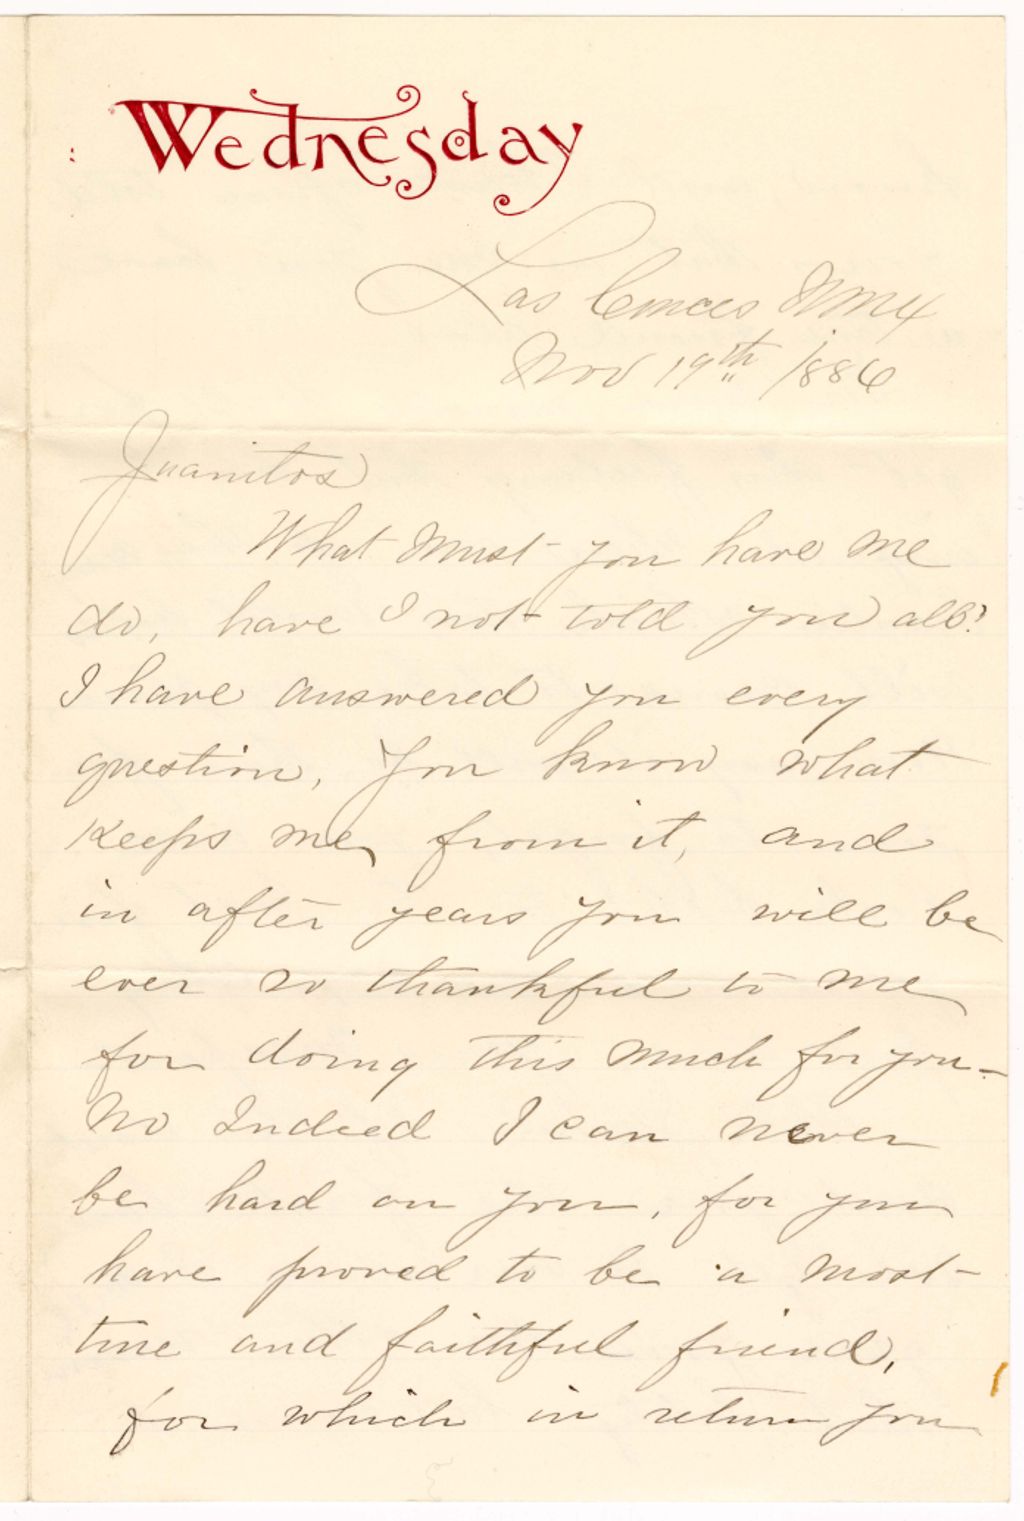 Wednesday
Las Cruces N Mex
Nov 19th 1886
Juanitos
What must you have me
do, have I not told you all?
I have answered you every
question, You know what
keeps me from it, and
in after years you will be
ever so thankful to me
for doing this much for you-
No Indeed I can never
be hard on you, for you
have proved to be a most
true and faithful friend,
for which in return you